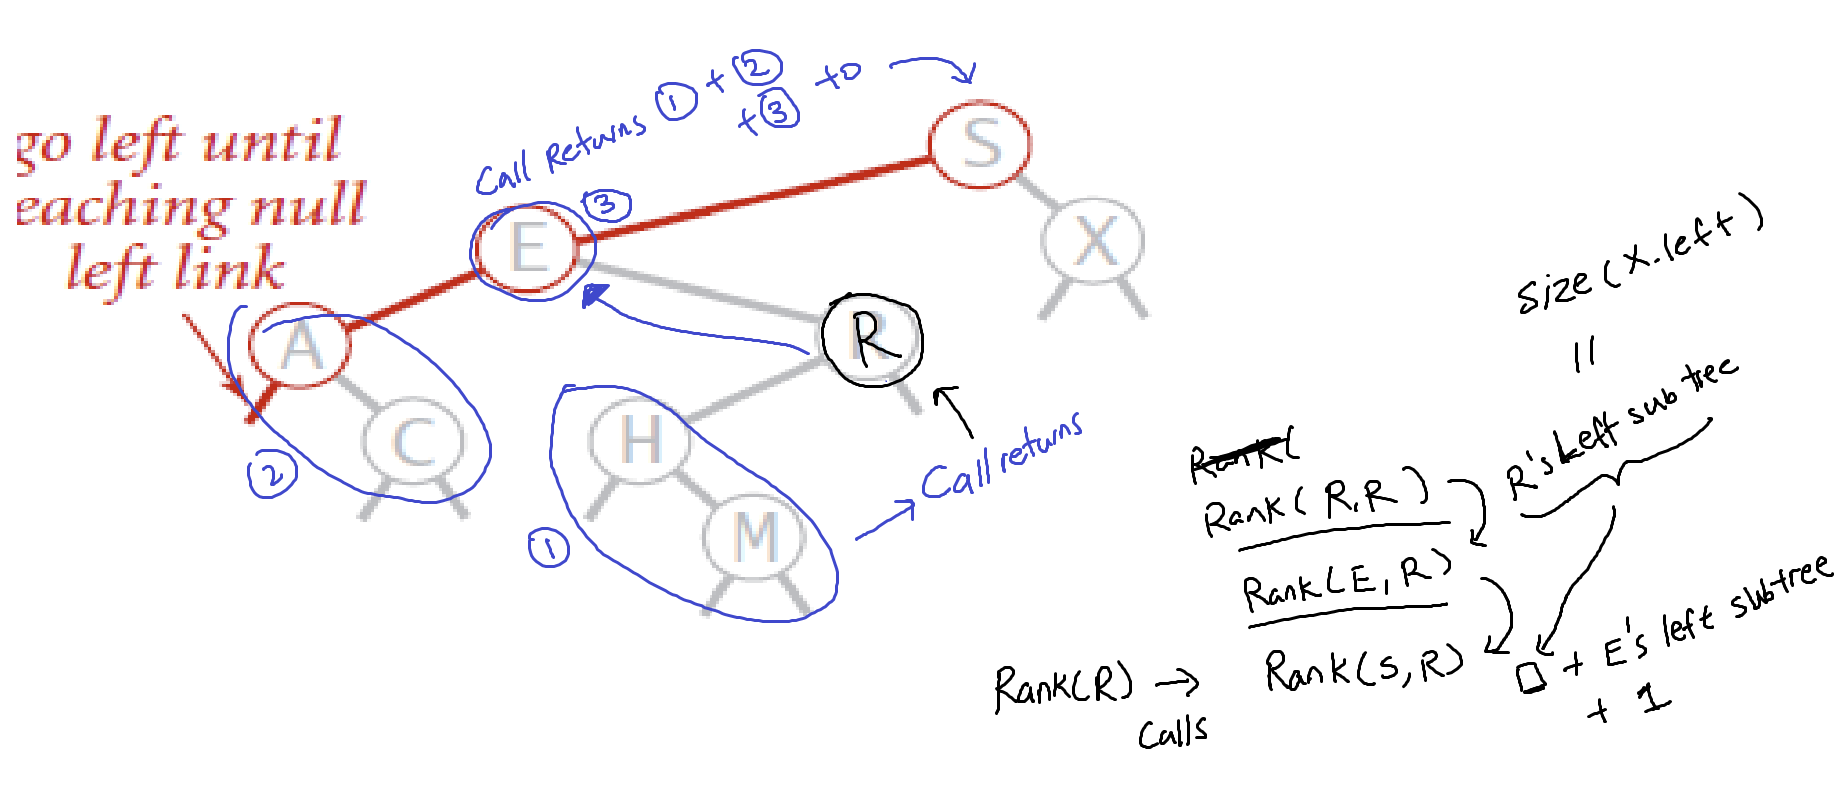 go left until
eaching null
left link
Call Returns ① + ②
+ ③ to
S
E ③
X
A
R
C
②
H
M
①
Call returns
size(x.left)
||
R's Left subtree
Rank(
Rank(R,R)
Rank(E,R)
Rank(R) → Rank(S,R) □ + E's left subtree
+ 1
Calls